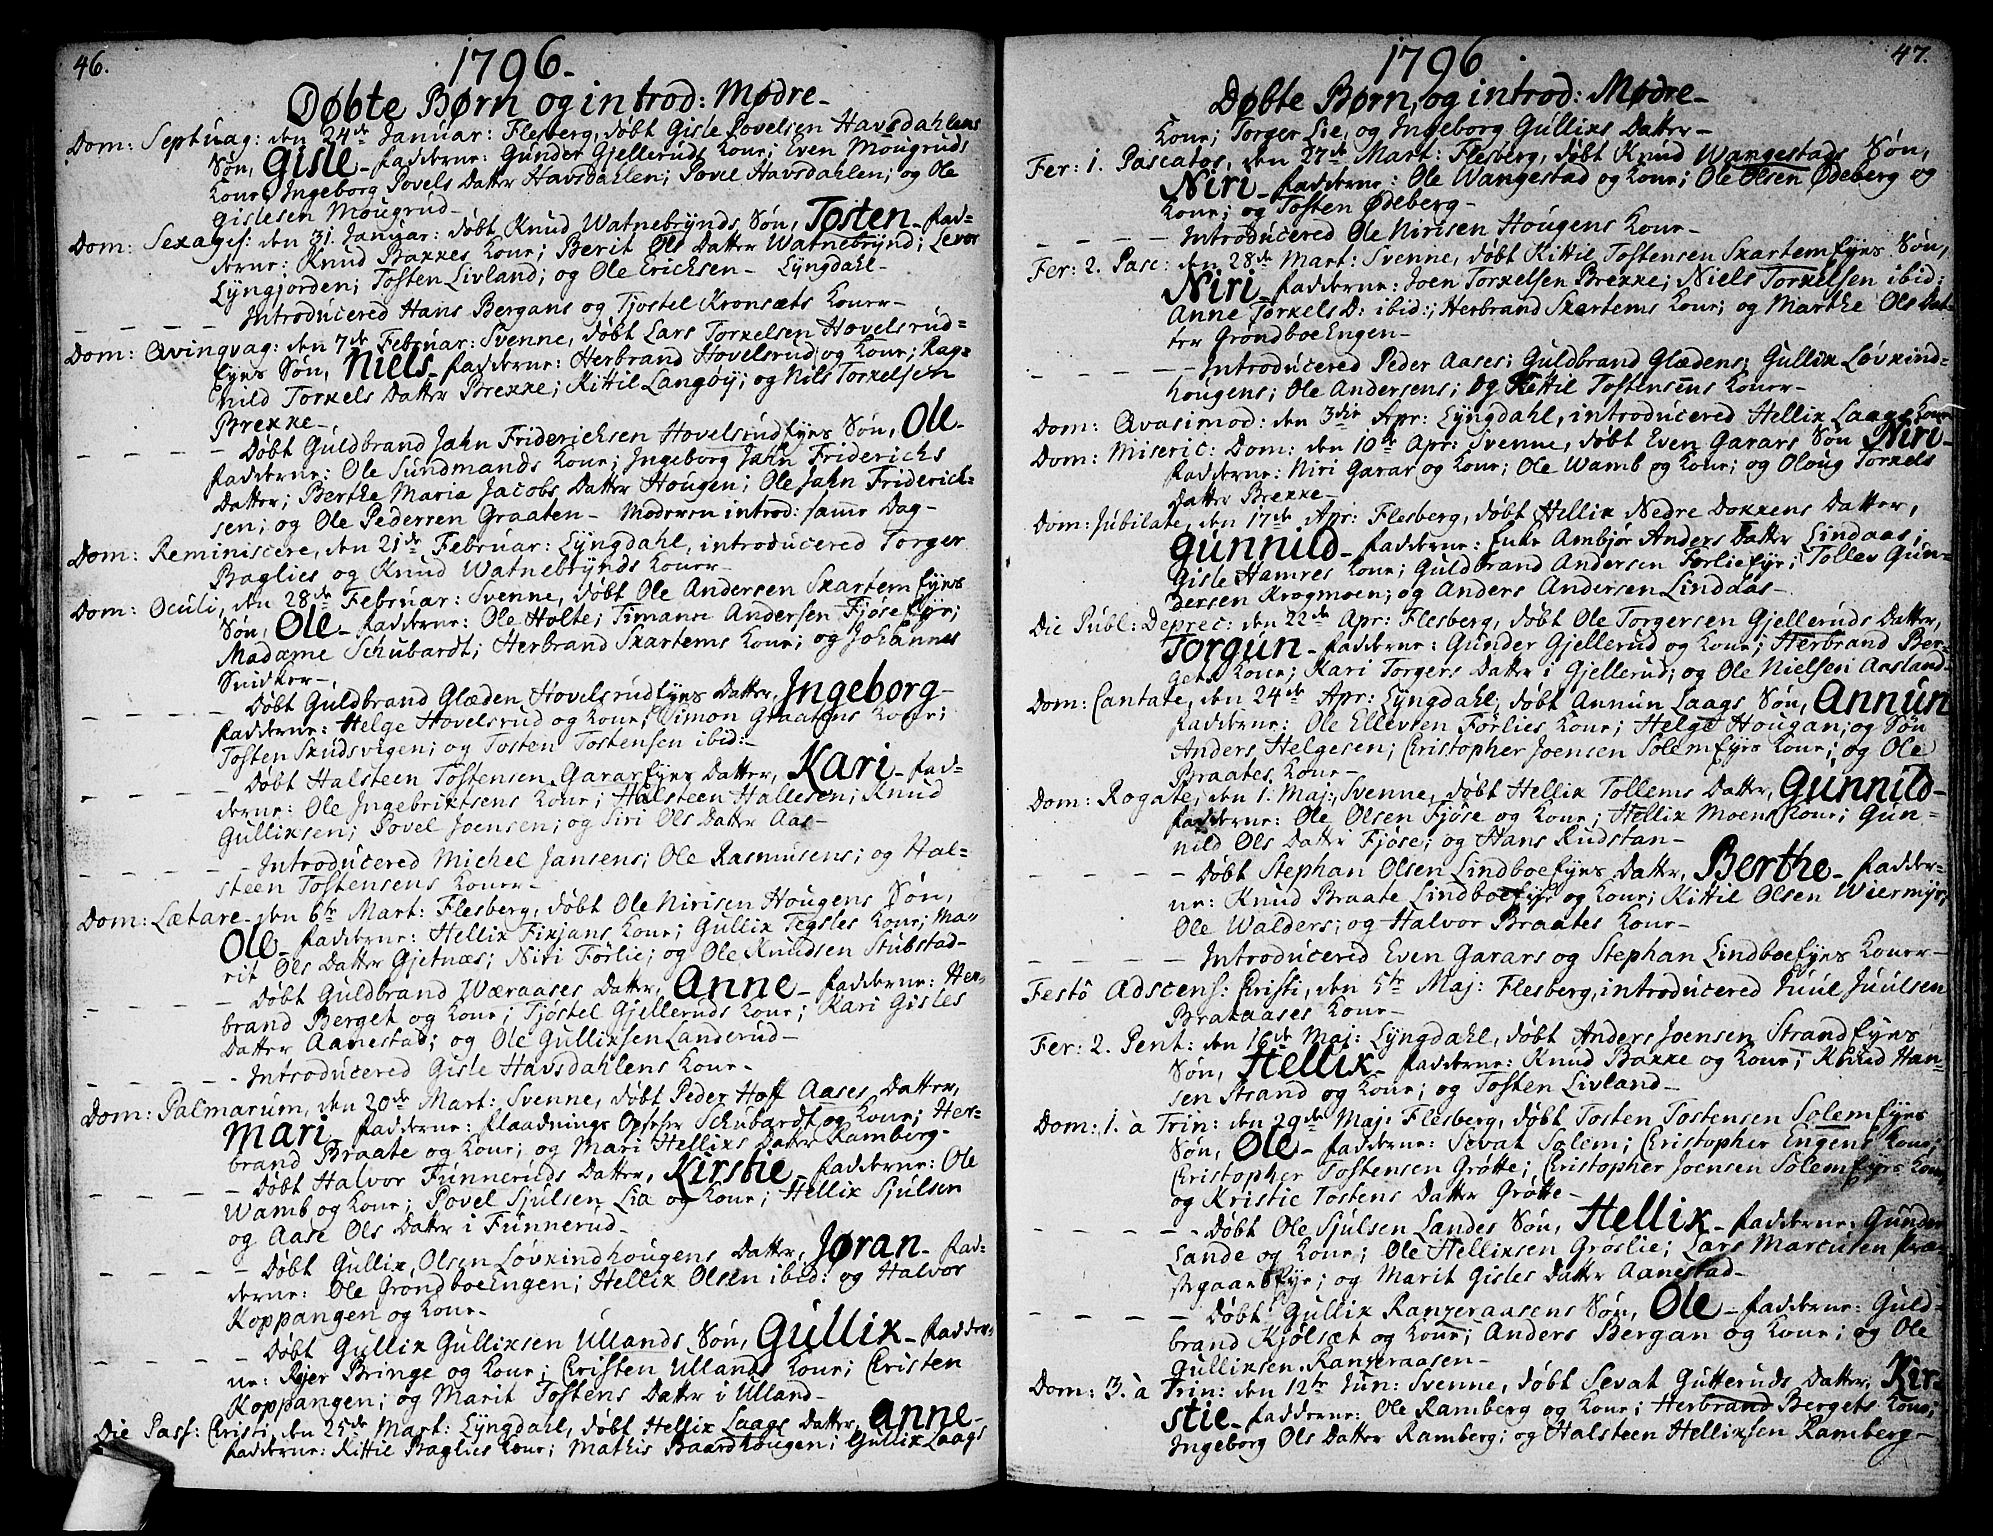 46.
1796.
Døbte Børn og introd: Mødre-
Dom: Septuag: den 24de Januar: Flesberg, døbt Gisle Povelsen Havsdahlens
Søn, Gisle- Fadderne: Gunder Gjelleruds Kone; Even Mougruds
Kone; Ingeborg Povels Datter Havsdahlen; Povel Havsdahlen; og Ole
Gislesen Mougrud-
Dom: Sexages: den 31. Januar: døbt Knud Watnebrynds Søn, Tosten- Fad-
derne: Knud Bakkes Kone; Berit Ols Datter Watnebrynd; Levor
Lyngjorden; Tosten Livland; og Ole Erichsen- Lyngdahl-
- - - - Introducered Hans Bergans og Tjostel Kronsæts Koner-
Dom: Qvinqvag: den 7de Februar: Svenne, døbt Lars Torkelsen Hovelsrud-
Eyes Søn, Niels- Fadderne: Herbrand Hovelsrud og Kone; Rag-
nild Torkels Datter Brekke; Kittil Langøy; og Nils Torkelsen
Brekke-
- - - - Døbt Guldbrand Jahn Friderichsen Hovelsrudeyes Søn, Ole-
Fadderne: Ole Sundmands Kone; Ingeborg Jahn Friderichs
Datter; Berthe Maria Jacobs Datter Hougen; Ole Jahn Friderich-
sen; og Ole Pedersen Graaten- Moderen introd: samme Dag-
Dom: Reminiscere, den 21de Februar: Lyngdahl, introducered Torger
Baglies og Knud Watnebrynds Koner-
Dom: Oculi, den 28de Februar: Svenne, døbt Ole Andersen Skartem Eyes
Søn, Ole- Fadderne: Ole Holte; Timann Andersen Fjøse Eye;
Madame Schubardt; Herbrand Skartems Kone; og Johannes
Snidker-
- - - - Døbt Guldbrand Glæden Hovelsrudeyes Datter, Ingeborg-
Fadderne: Helge Hovelsrud og Kone; Simon Graatens Kone;
Tosten Skudsvigen; og Tosten Tostensen ibid:-
- - - - Døbt Halsteen Tostensen Garareyes Datter, Kari- Fad-
derne: Ole Ingebriktsens Kone; Halsteen Hallesen; Knud
Gulliksen; Povel Joensen; og Siri Ols Datter Aas-
- - - - Introducered Michel Jansens; Ole Rasmusens; og Hal-
steen Tostensens Koner-
Dom: Lætare- den 6te Mart: Flesberg, døbt Ole Nirisen Hougens Søn,
Ole- Fadderne: Hellik Fixjans Kone; Gullik Tegsles Kone; Ma-
rit Ols Datter Gjetnæs; Niri Førlie; og Ole Knudsen Stubstad-
- - - - Døbt Guldbrand Væraases Datter, Anne- Fadderne: Her-
brand Berget og Kone; Tjøstel Gjelleruds Kone; Kari Gisles
Datter Aanestad; og Ole Gulliksen Landerud-
- - - - Introducered Gisle Havsdahlens Kone-
Dom: Palmarum, den 20de Mart: Svenne, døbt Peder Hoff Aases Datter,
Mari- Fadderne: Flaadnings Opseser Schubardt og Kone; Her-
brand Braate og Kone; og Mari Helliks Datter Ramberg-
- - - - Døbt Halvor Funneruds Datter, Kirstie- Fadderne: Ole
Wamb og Kone; Povel Sjulsen Lia og Kone; Hellik Sjulsen
og Aase Ols Datter i Funnerud-
- - - - Døbt Gullik Olsen Løvkindhougens Datter, Jøran- Fad-
derne: Ole GrøndboeEngen; Hellik Olsen ibid: og Halvor
Koppangen og Kone-
- - - - Døbt Gullik Gulliksen Ullands Søn, Gullik- Fadder-
ne: Rejer Bringe og Kone; Christen Ullands Kone; Christen
Koppangen; og Marit Tostens Datter i Ulland-
Die Pass: Christi, den 25de Mart: Lyngdahl, døbt Hellik Laags Datter, Anne-
Fadderne: Kittil Baglies Kone; Mathis Baardhougen; Gullik Laags
47.
1796
Døbte Børn, og introd: Mødre-
Kone; Torger Lie, og Ingeborg Gulliks Datter-
Fer: 1. Pascatos, den 27de Mart: Flesberg, døbt Knud Wangestads Søn,
Niri- Fadderne: Ole Wangestad og Kone; Ole Olsen Ødeberg og
Kone; og Tosten Ødeberg-
- - - - Introducered Ole Nirisen Hougens Kone-
Fer: 2. Pasc: den 28de Mart: Svenne, døbt Kittil Tostensen Skartemeyes Søn,
Niri- Fadderne: Joen Torkelsen Brekke; Niels Torkelsen ibid:
Anne Torkels D: ibid:; Herbrand Skartems Kone; og Marthe Ols Dat-
ter GrøndboeEngen-
- - - - Introducered Peder Aases; Guldbrand Glædens; Gullik Løvkind-
hougens; Ole Andersens; Og Kittil Tostensens Koner-
Dom: Qvasimod: den 3die Apr: Lyngdahl, introducered Hellik Laags Kone
Dom: Miseric: Dom: den 10de Apr: Svenne, døbt Even Garars Søn Niri-
Fadderne: Niri Garar og Kone; Ole Wamb og Kone; og Oloug Torkels
Datter Brekke-
Dom: Jubilate, den 17de Apr: Flesberg, døbt Hellik Nedre Dokkens Datter,
Gunnild- Fadderne: Enke Ambjør Anders Datter Lindaas;
Gisle Hamres Kone; Guldbrand Andersen Førlieeye; Tollev Gun-
dersen Krogmoen; og Anders Andersen Linddas-
Die Publ: Deprec: den 22de Apr: Flesberg, døbt Ole Torgersen Gjelleruds Datter,
Torgun- Fadderne: Gunder Gjellerud og Kone; Herbrand Ber-
gets Kone; Kari Torgers Datter i Gjellerud; og Ole Nielsen Aasland-
Dom: Cantate, den 24de Apr: Lyngdahl; døbt Annun Laags Søn, Annun
Fadderne: Ole Ellevsen Førlies Kone; Helge Hougan; og Søn
Anders Helgesen; Christopher Joensen Solemeyes Kone; og Ole
Braates Kone-
Dom: Rogate, den 1. Maj: Svenne, døbt Hellik Tollems Datter, Gunnild-
Fadderne: Ole Olsen Fjøse og Kone; Hellik Moens Kone; Gun-
nild Ols Datter Fjøse; og Hans Rudstan-
- - - - Døbt Stephan Olsen Lindboeeyes Datter, Berthe- Fadder-
ne: Knud Braate Lindboeeye og Kone; Kittil Olsen Wiermyr;
Ole Walders; og Halvor Braates Kone-
- - - - Introducered Even Garars og Stephan Lindboeeyes Koner-
Festo Adscens: Christi, den 5te Maj: Flesberg, introducered Juul Juulsen
Brakaases Kone-
Fer: 2. Pent: den 16de Maj: Lyngdahl, døbt Anders Joensen Strandeyes
Søn, Hellik- Fadderne: Knud Bakke og Kone; Knud Han-
sen Strand og Kone; og Tosten Livland-
Dom: 1. à Trin: den 29de Maj: Flesberg, døbt Tosten Tostensen Solemeyes
Søn, Ole- Fadderne: Sevat Solem; Christopher Engens Kone;
Christopher Tostensen Grøtte; Christopher Joensen Solemeyes Kone,
og Kristie Tostens Datter Grøtte-
- - - - Døbt Ole Sjulsen Landes Søn, Hellik- Fadderne: Gunder
Lande og Kone; Ole Helliksen Grøslie; Lars Marcusen Præ-
stgaardseye; og Marit Gisles Datter Aanestad-
- - - - Døbt Gullik Ranzeraasens Søn, Ole- Fadderne: Guld-
brand Kjølsæt og Kone; Anders Bergan og Kone; og Ole
Gulliksen Ranzeraasen-
Dom: 3. à Trin: den 12te Jun: Svenne, døbt Sevat Gutteruds Datter, Kir-
stie- Fadderne: Ole Ramberg og Kone; Herbrand Bergets Kone;
Ingeborg Ols Datter Ramberg; og Halsteen Helliksen Ramberg-